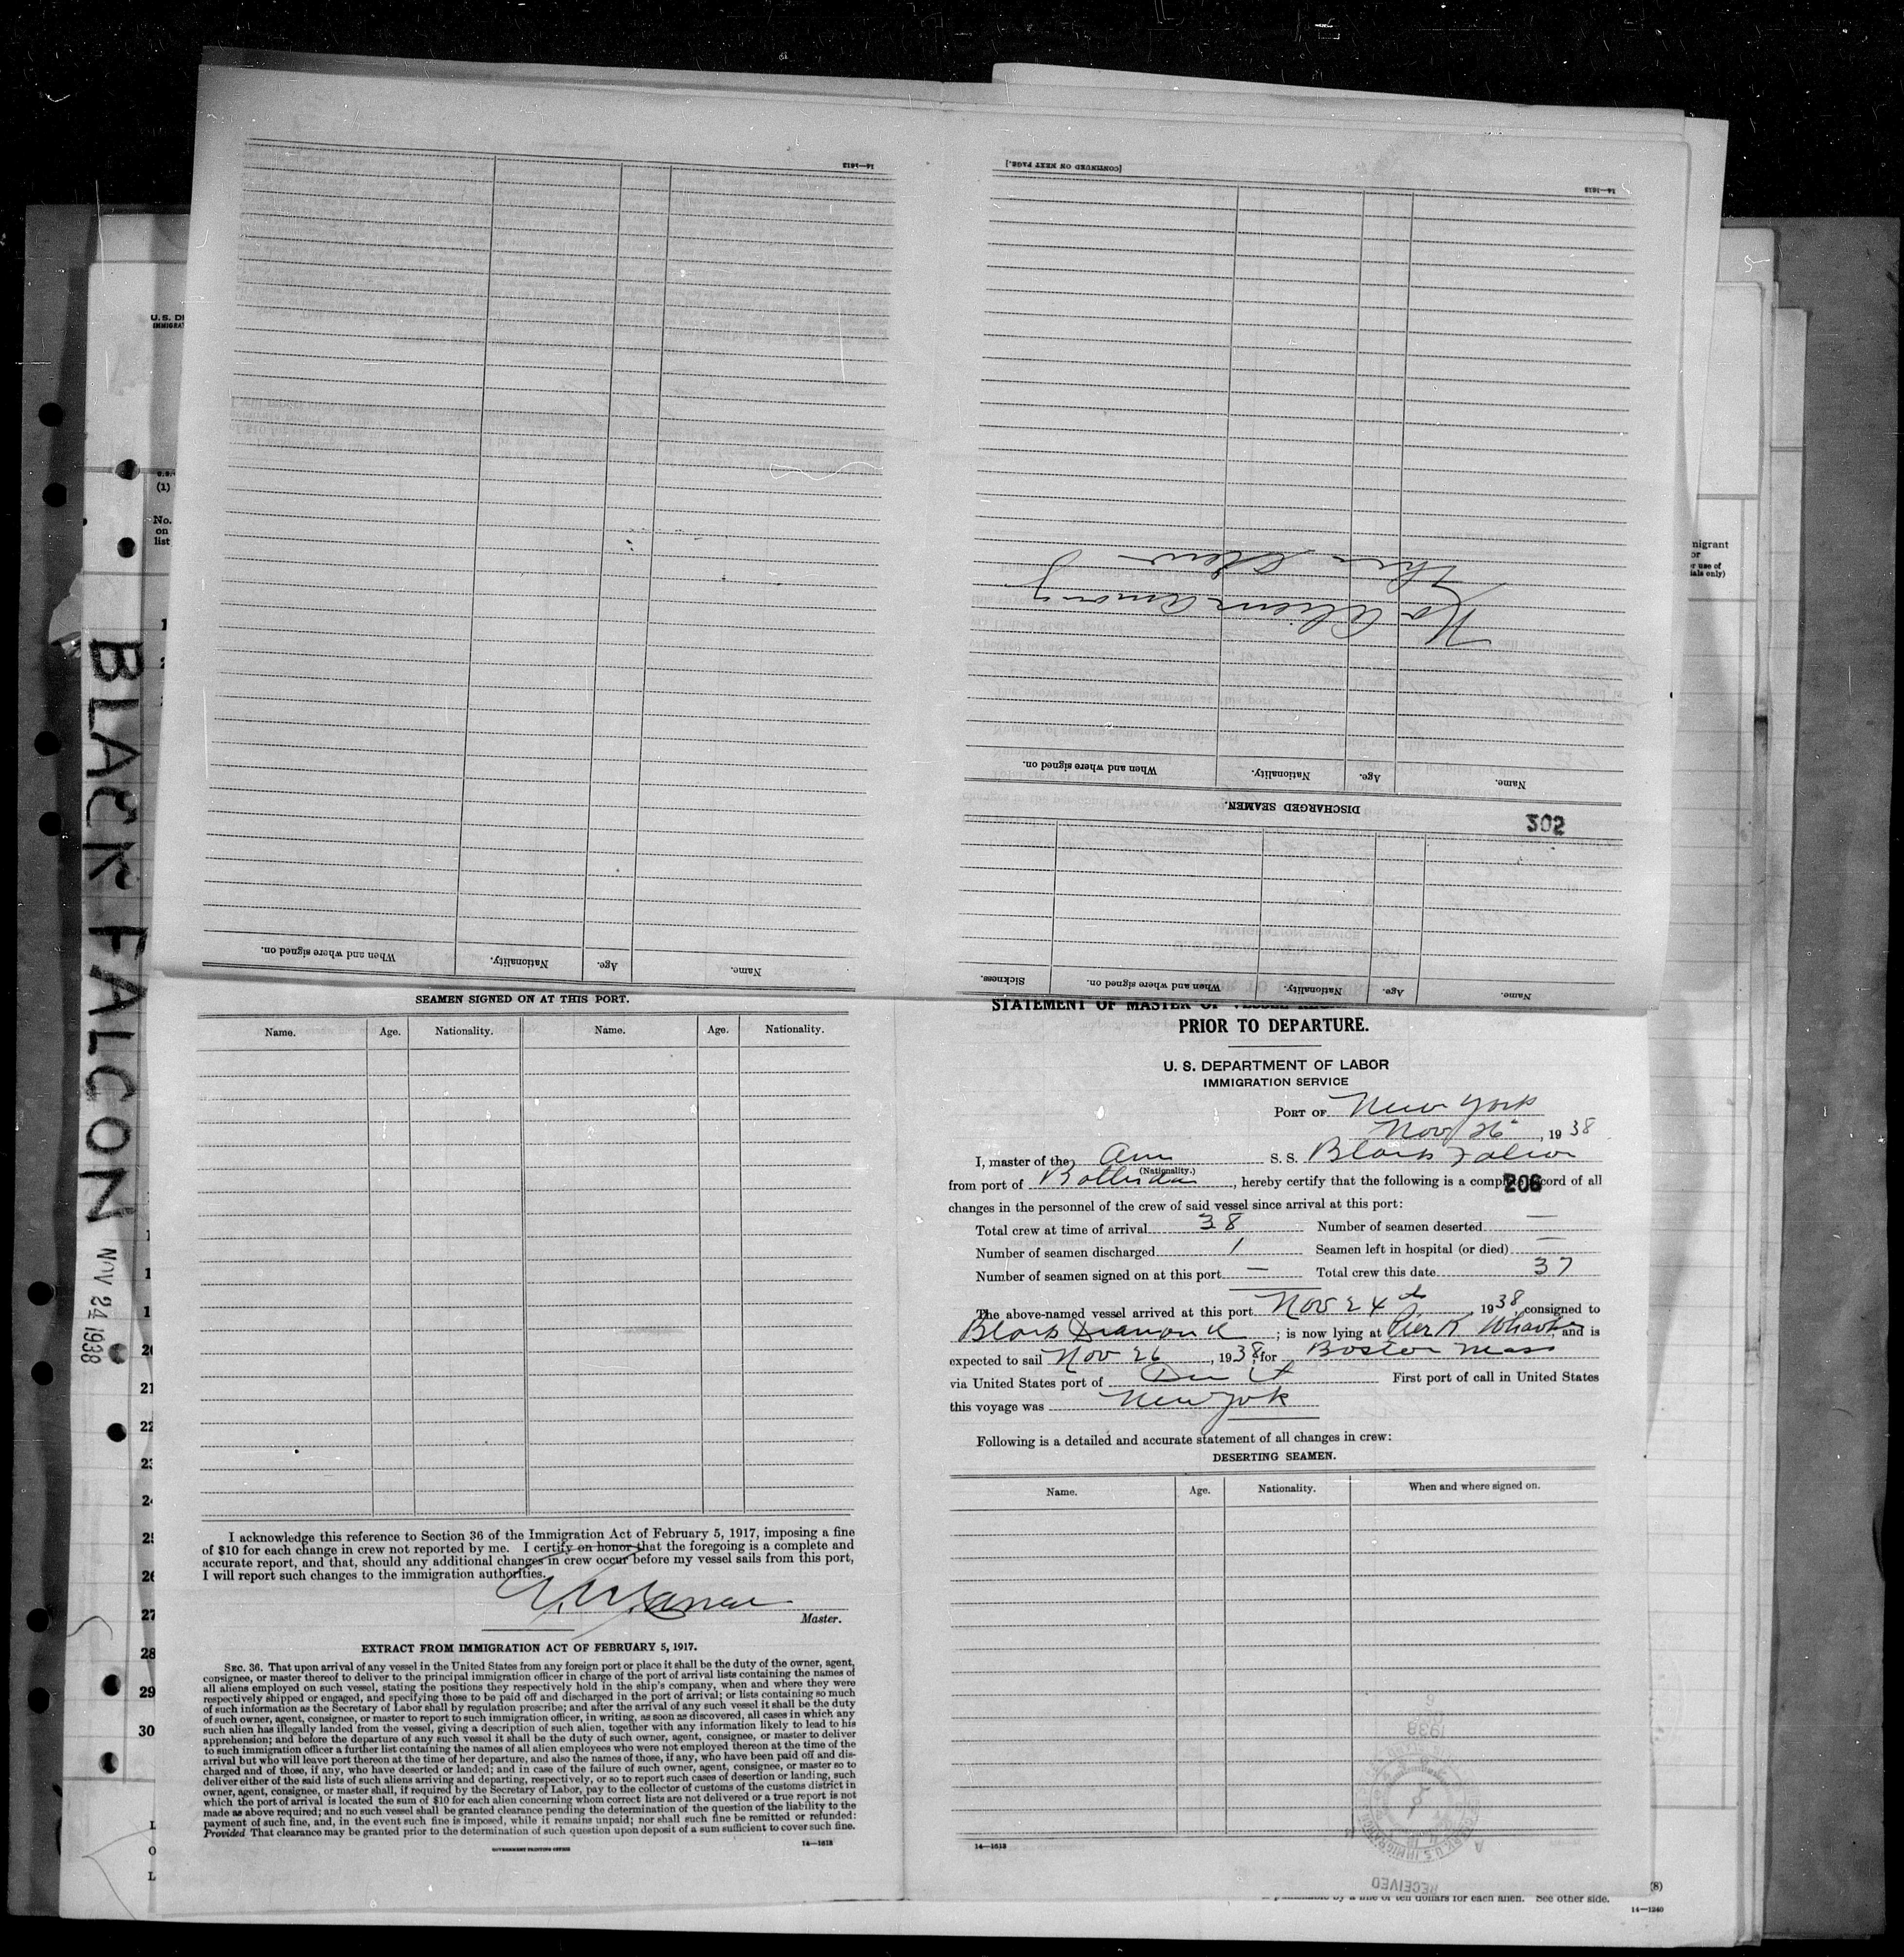 14—1613
[CONTINUED ON NEXT PAGE.]
14—1613
No Aliens among
their Crew
When and where signed on.
Nationality.
Age.
Name.
DISCHARGED SEAMEN.
202
Sickness.
When and where signed on.
Nationality.
Age.
Name.
When and where signed on.
Nationality.
Age.
Name.
U.S. DE
IMMIGRAT
(1)
No.
on
list
BLACK FALCON NOV 24 1938
21
22
26
27
28
29
30
SEAMEN SIGNED ON AT THIS PORT.
Name. Age. Nationality. Name. Age. Nationality.
I acknowledge this reference to Section 36 of the Immigration Act of February 5, 1917, imposing a fine
of $10 for each change in crew not reported by me. I certify on honor that the foregoing is a complete and
accurate report, and that, should any additional changes in crew occur before my vessel sails from this port,
I will report such changes to the immigration authorities.
Master.
EXTRACT FROM IMMIGRATION ACT OF FEBRUARY 5, 1917.
SEC. 36. That upon arrival of any vessel in the United States from any foreign port or place it shall be the duty of the owner, agent,
consignee, or master thereof to deliver to the principal immigration officer in charge of the port of arrival lists containing the names of
all aliens employed on such vessel, stating the positions they respectively hold in the ship's company, when and where they were
respectively shipped or engaged, and specifying those to be paid off and discharged in the port of arrival; or lists containing so much
of such information as the Secretary of Labor shall by regulation prescribe; and after the arrival of any such vessel it shall be the duty
of such owner, agent, consignee, or master to report to such immigration officer, in writing, as soon as discovered, all cases in which any
such alien has illegally landed from the vessel, giving a description of such alien, together with any information likely to lead to his
apprehension; and before the departure of any such vessel it shall be the duty of such owner, agent, consignee, or master to deliver
to such immigration officer a further list containing the names of all alien employees who were not employed thereon at the time of the
arrival but who will leave port thereon at the time of her departure, and also the names of those, if any, who have been paid off and dis-
charged and of those, if any, who have deserted or landed; and in case of the failure of such owner, agent, consignee, or master so to
deliver either of the said lists of such aliens arriving and departing, respectively, or so to report such cases of desertion or landing, such
owner, agent, consignee, or master shall, if required by the Secretary of Labor, pay to the collector of customs of the customs district in
which the port of arrival is located the sum of $10 for each alien concerning whom correct lists are not delivered or a true report is not
made as above required; and no such vessel shall be granted clearance pending the determination of the question of the liability to the
payment of such fine, and, in the event such fine is imposed, while it remains unpaid; nor shall such fine be remitted or refunded:
Provided That clearance may be granted prior to the determination of such question upon deposit of a sum sufficient to cover such fine.
GOVERNMENT PRINTING OFFICE
14—1613
STATEMENT OF MASTER OF VESSEL
PRIOR TO DEPARTURE.
U. S. DEPARTMENT OF LABOR
IMMIGRATION SERVICE
PORT OF New York
Nov 26, 1938
I, master of the Am S. S. Black Falcon
(Nationality.)
from port of Rotterdam, hereby certify that the following is a comp 206 ord of all
changes in the personnel of the crew of said vessel since arrival at this port:
Total crew at time of arrival 38 Number of seamen deserted —
Number of seamen discharged 1 Seamen left in hospital (or died) —
Number of seamen signed on at this port — Total crew this date 37
The above-named vessel arrived at this port Nov 24th, 1938, consigned to
Black Diamond; is now lying at Pier K and is
expected to sail Nov 26, 1938, for Boston Mass
via United States port of First port of call in United States
this voyage was New York
Following is a detailed and accurate statement of all changes in crew:
DESERTING SEAMEN.
Name. Age. Nationality. When and where signed on.
14—1613
1938
RECEIVED
of ten dollars for each alien. See other side.
(8)
14—1240